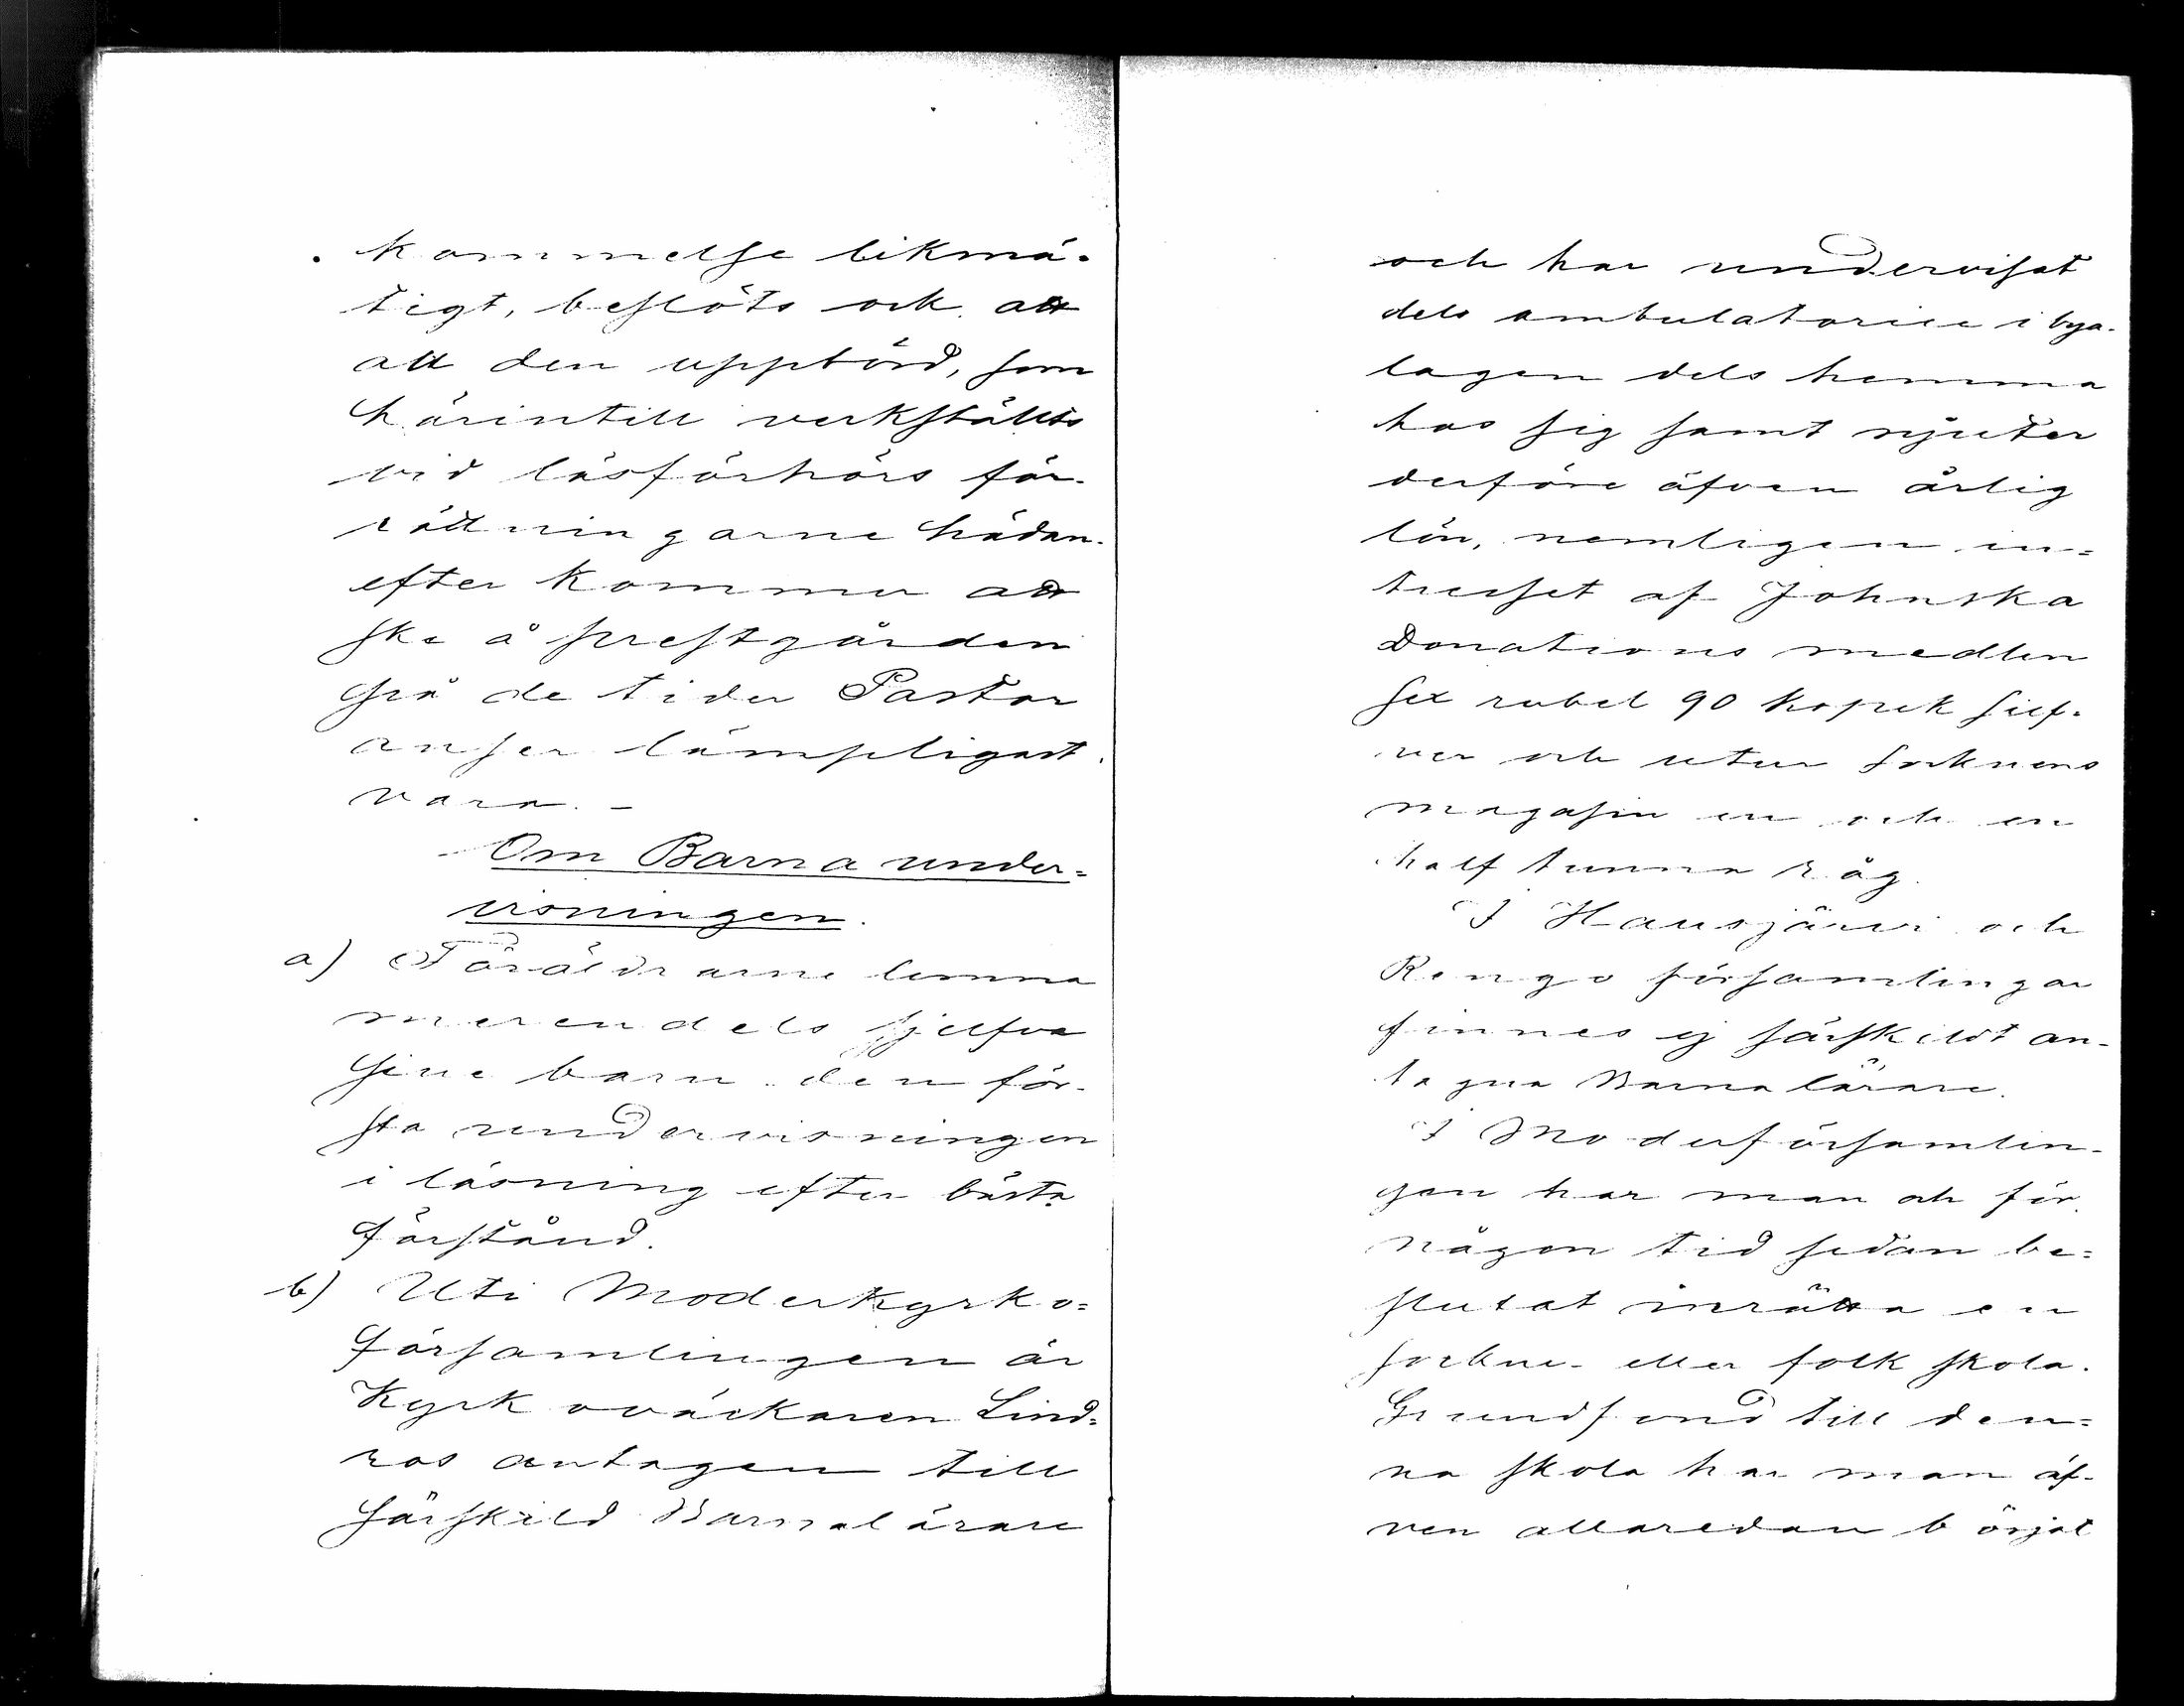 kommelse likmä-
tigt, beslöts ock att
att den uppbörd, som
härintill verkställts
vid läsförhörs för-
rättningarne hädan-
efter kommer att
ske å prestgården
på de tider Pastor
anser lämpligast
vara. -
Om Barna under=
visningen.
a) Föräldrarne lemna
merendels sjelfva
sine barn den för-
sta undervisningen
i läsning efter bästa
förstånd.
b) Uti Moderkyrko=
församlingen är
Kyrkoväckaren Lind=
ros antagen till
särskild Barnalärare
och har undervisat
dels ambulatorice i bya-
lagen dels hemma
hos sig samt njuter
derföre äfven årlig
lön, nemligen in=
tresset af Johnska
Donations medlen
sex rubel 90 kopek silf-
ver och utur socknens
magasin en och en
half tunna råg.
I Hausjärvi och
Rengo församlingar
finnes ej särskildt an-
tagna Barnalärare.
I Moderförsamlin-
gen har man och för
någon tid sedan be=
slutat inrätta en
sockne- eller folk skola.
Grundfond till den=
na skola har man äf-
ven allaredan börjat